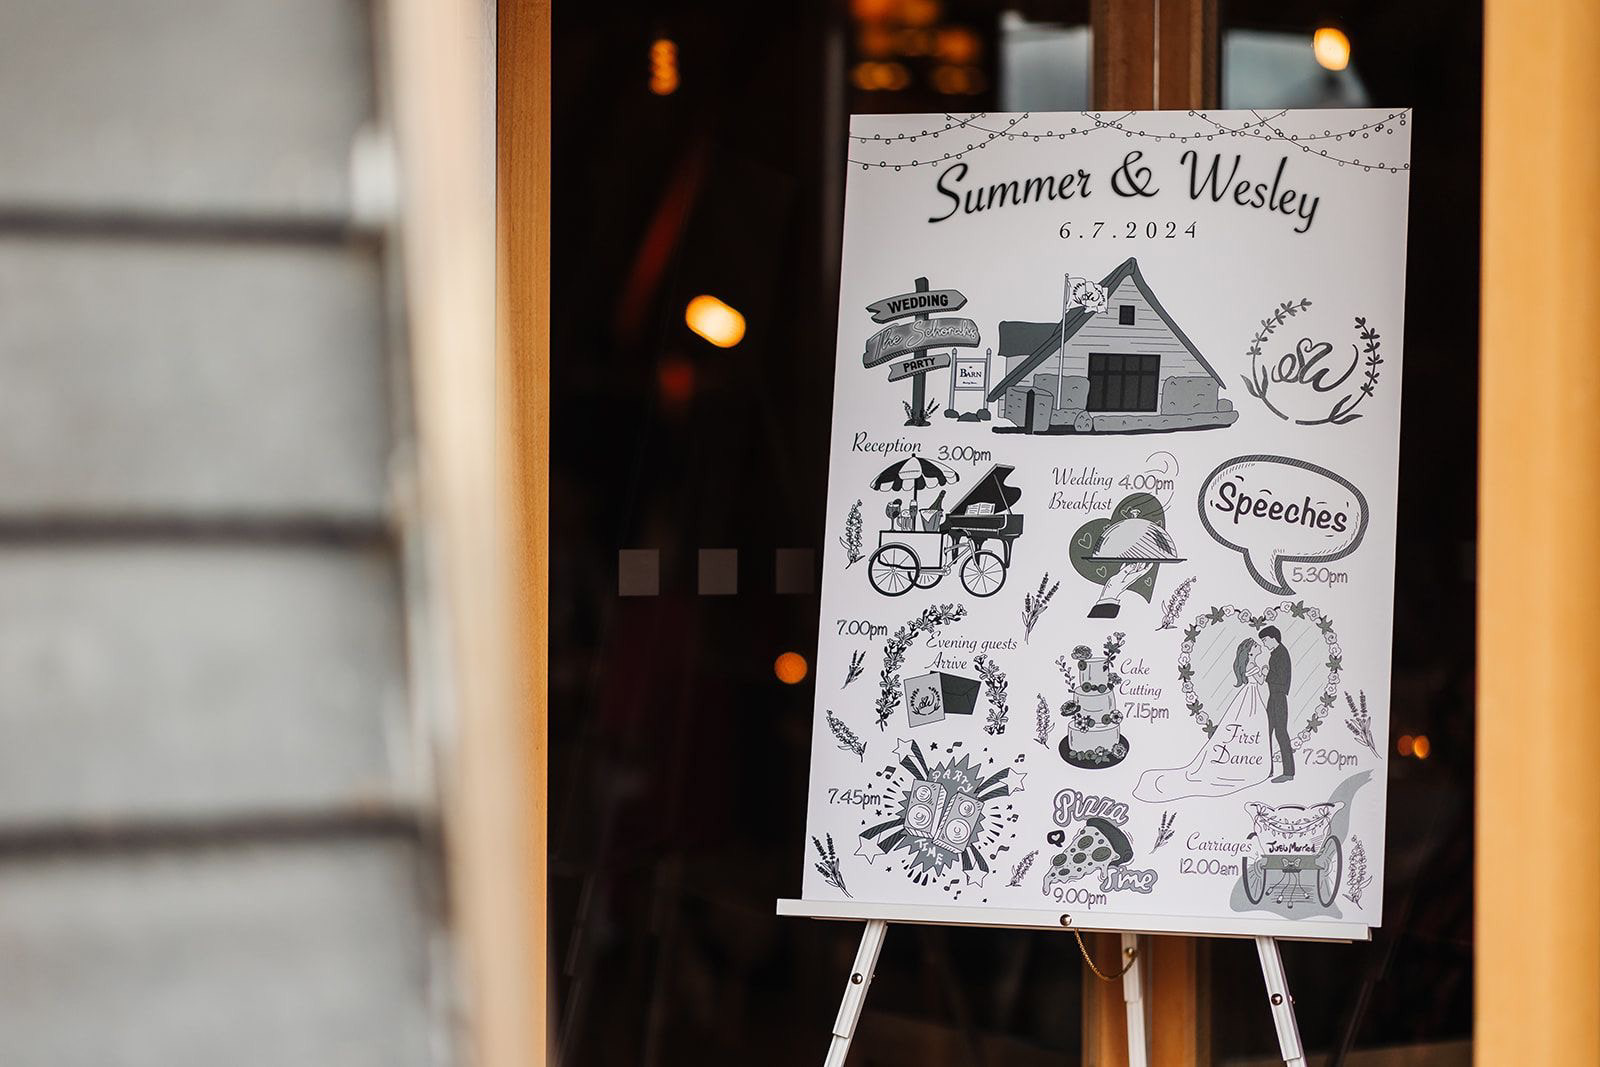 Summer & Wesley
6.7.2024
WEDDING
The Schorahs
PARTY
BARN
SW
SW
Reception 3.00pm
Wedding 4.00pm
Breakfast
Speeches
5.30pm
7.00pm
Evening guests
Arrive
SW
Cake
Cutting
7.15pm
First
Dance
7.30pm
7.45pm
PARTY
TIME
Pizza
Time
9.00pm
Carriages
12.00am
Just Married